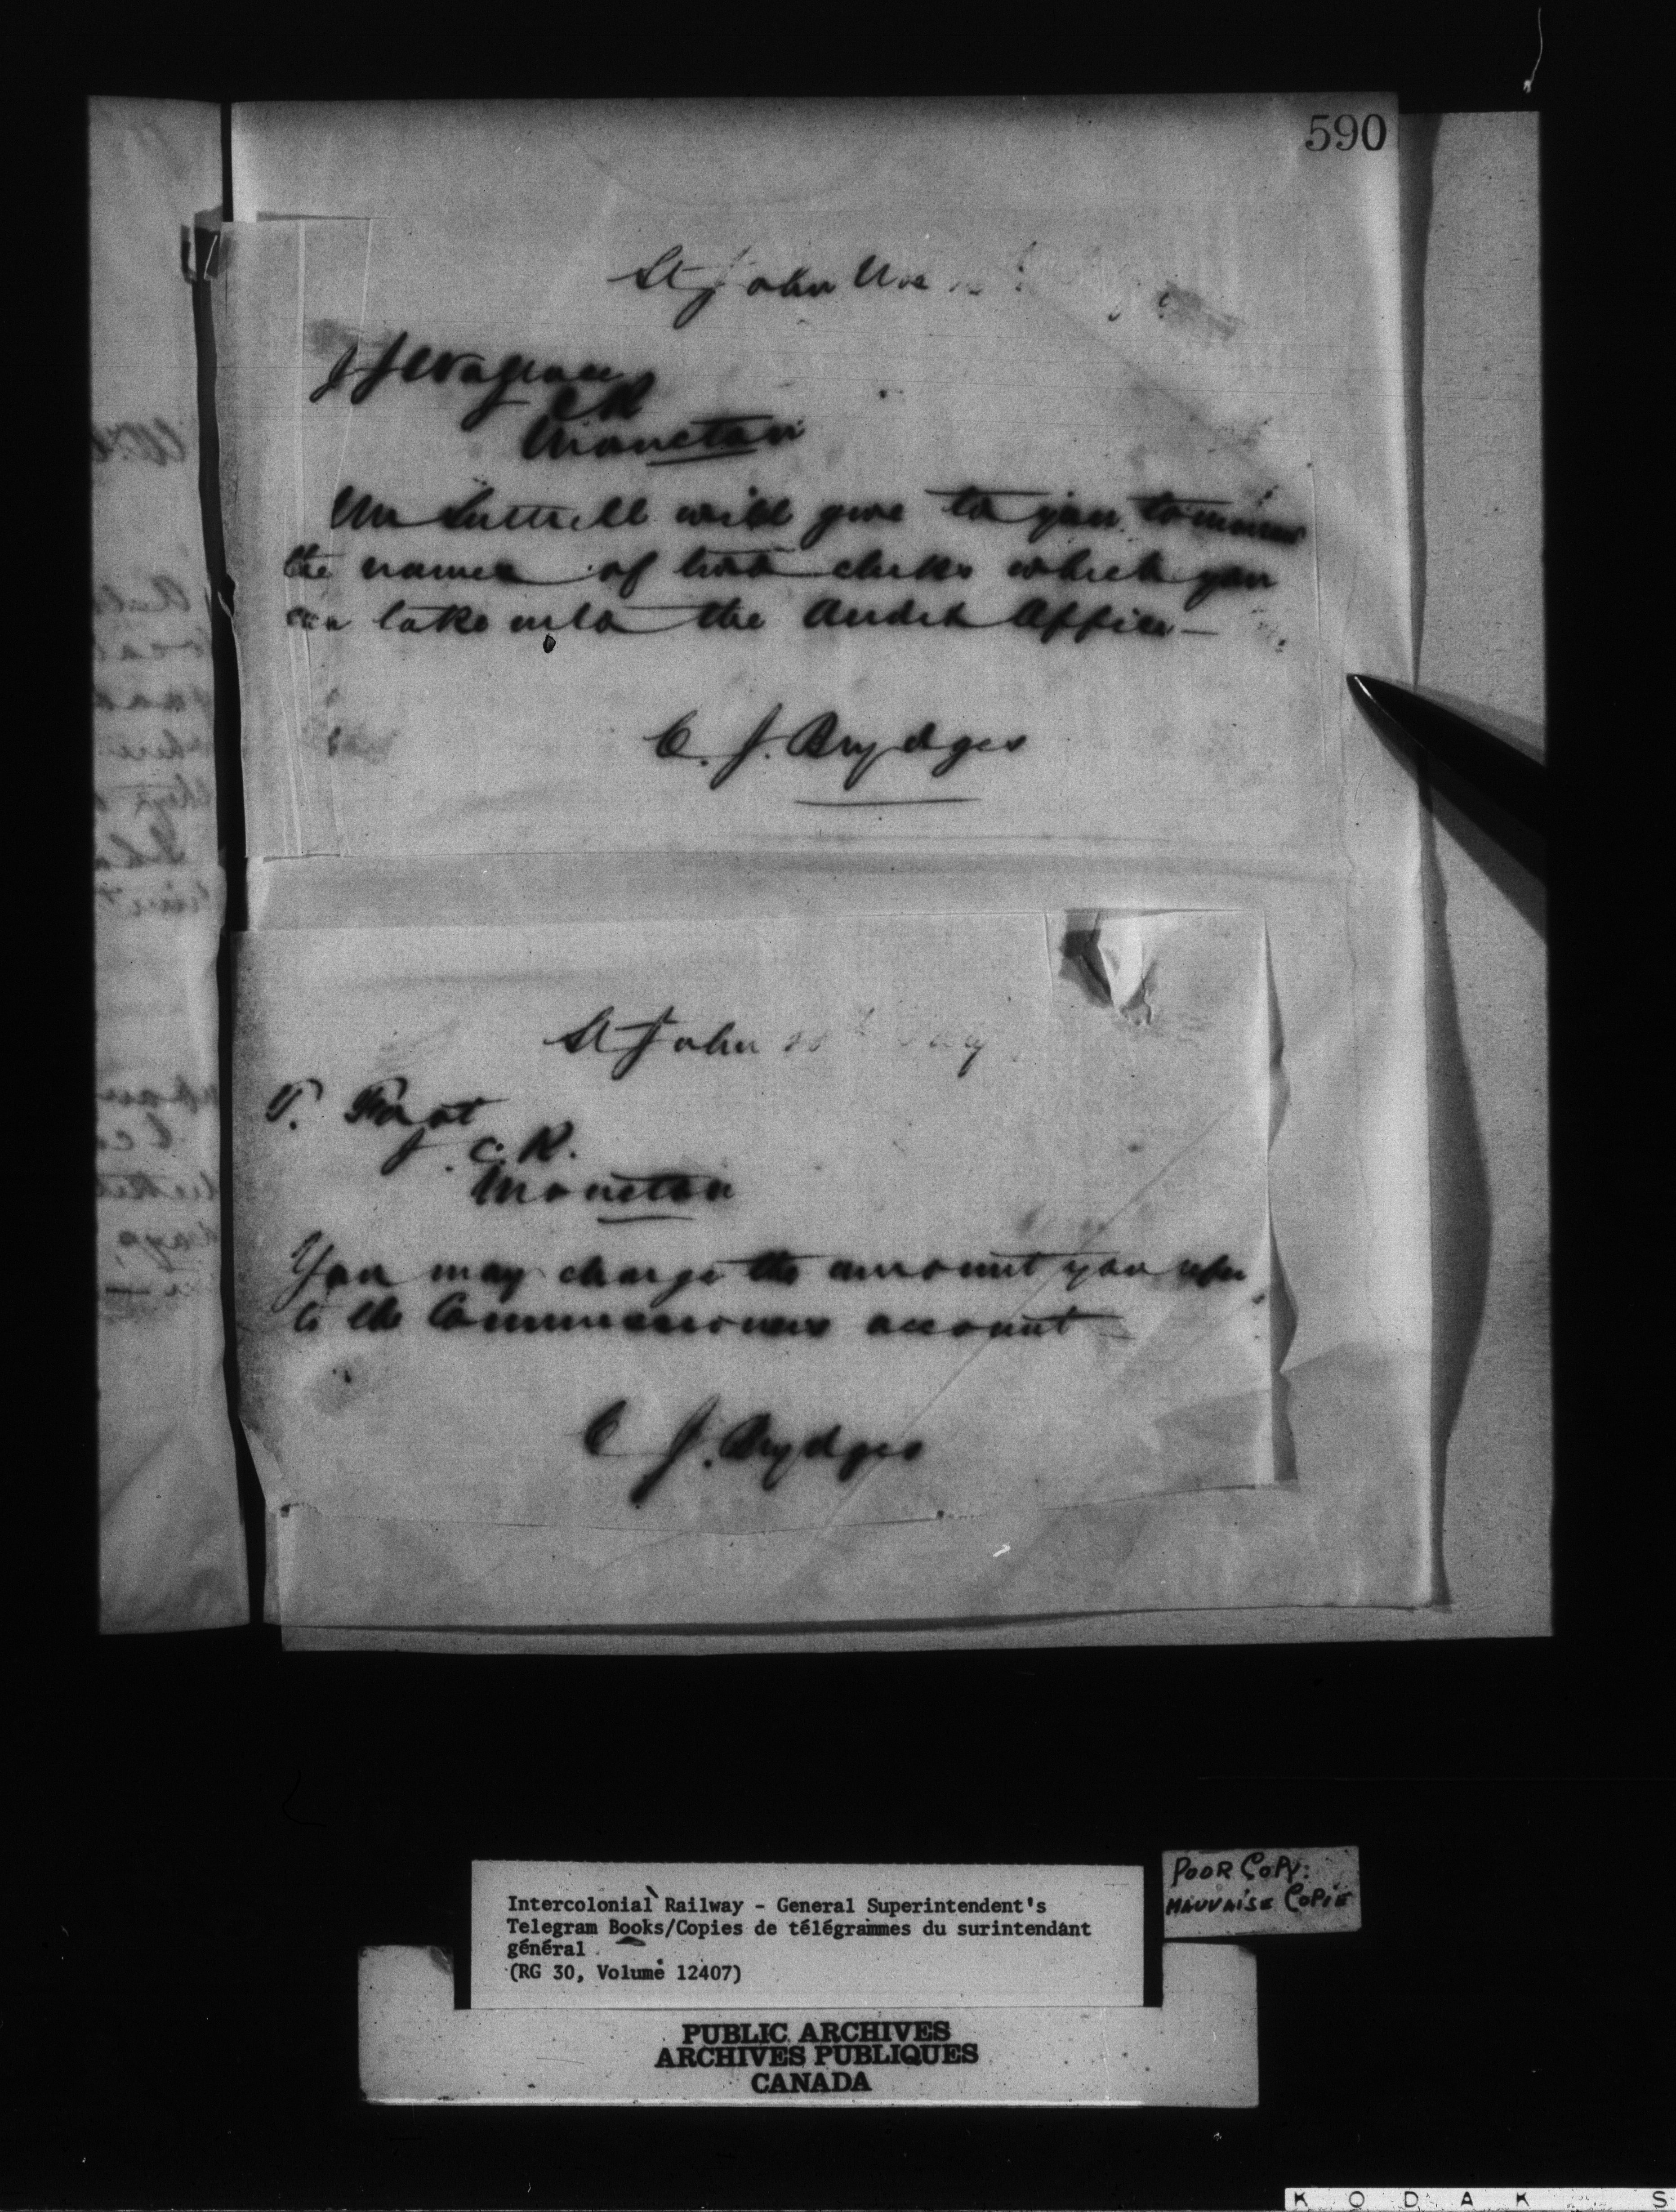 590
St John
J J Wallace
C R
Moncton
Mr Luttrell will give to you tomorrow
the names of two clerks which you
can take into the Audit Office —
C. J. Brydges
St John
T. Foot
I. C. R.
Moncton
You may charge the amount you refer
to the Commissioners account
C J. Brydges
Intercolonial Railway - General Superintendent's
Telegram Books/Copies de télégrammes du surintendant
général
(RG 30, Volume 12407)
POOR COPY:
MAUVAISE COPIE
PUBLIC ARCHIVES
ARCHIVES PUBLIQUES
CANADA
KODAK S